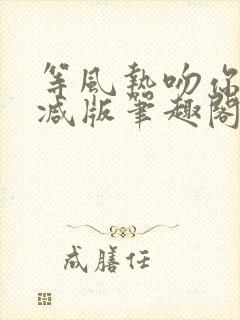 等風熱吻你
减版筆趣閣
成膳任